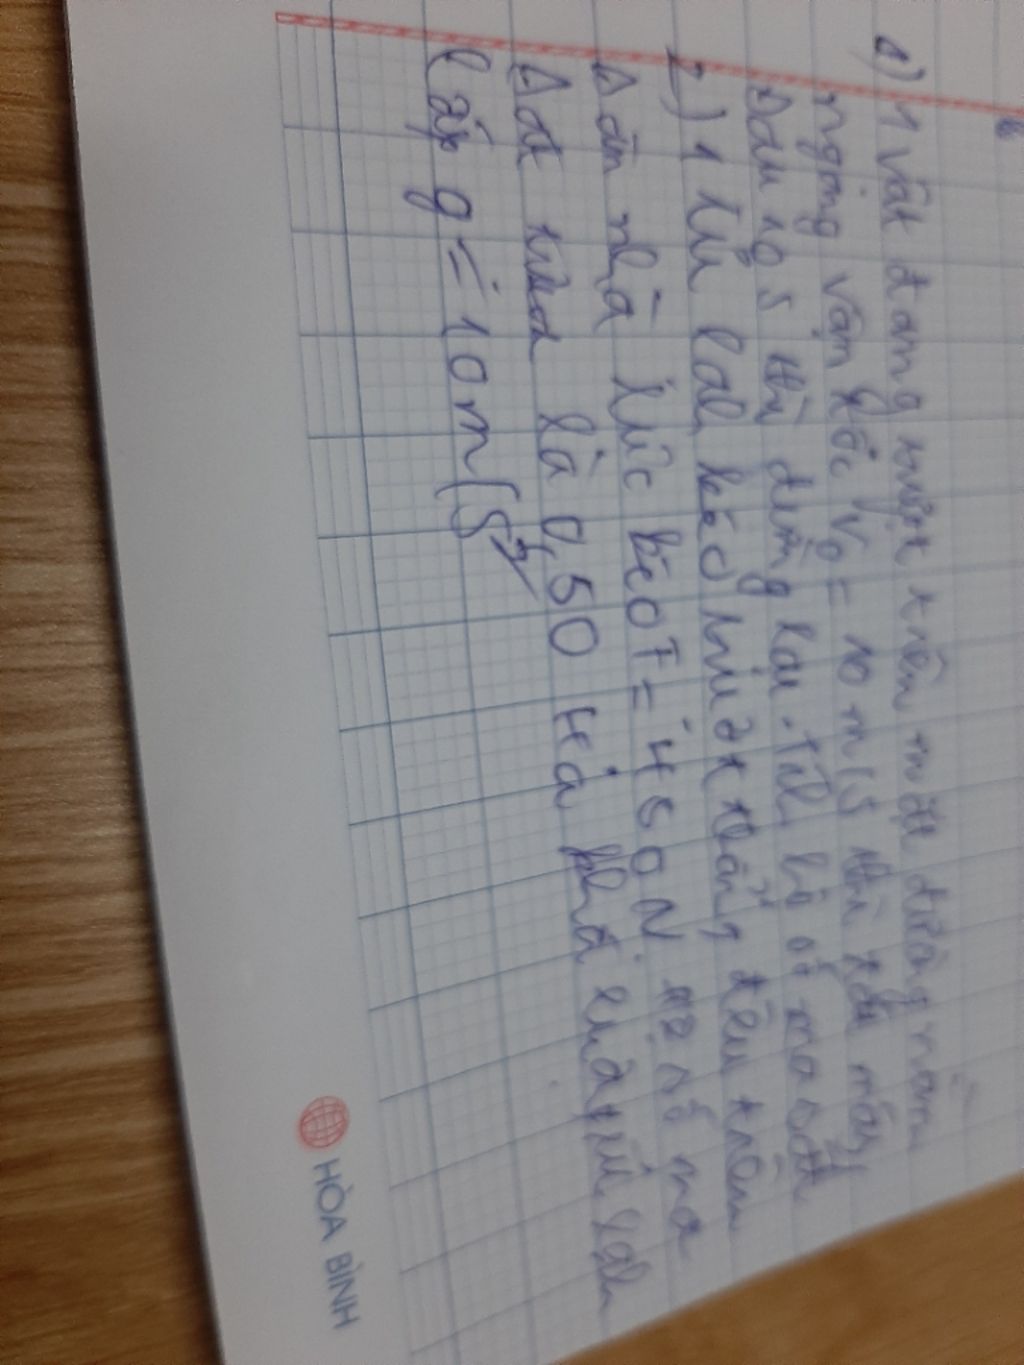 1) 1 vật đang trượt trên mặt đường nằm
ngang vận tốc V₀ = 10 m/s thì tắt máy,
sau 10 s thì dừng lại. Tính hệ số ma sát
2) 1 tủ lạnh kéo trượt thẳng đều trên
sàn nhà lực kéo F = 450N hệ số ma
sát trượt là 0,50 Hỏi khối của tủ lạnh
Lấy g = 10 m/s²
HÒA BÌNH